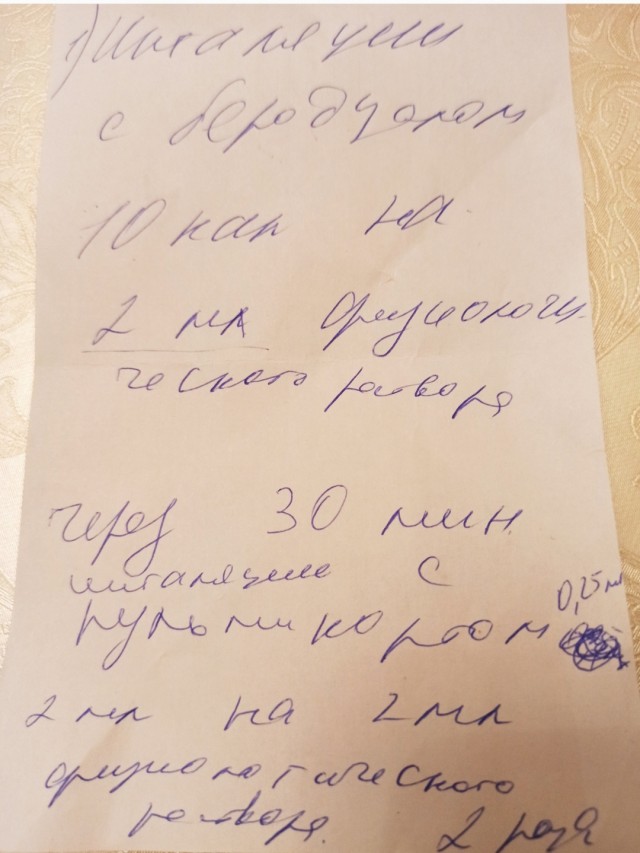 1) Ингаляции
с беродуалом
10 кап на
2 мл физиологи-
ческого раствора
через 30 мин.
ингаляции с
пульмикортом 0,25 мг
2 мл на 2 мл
физиологического
раствора. 2 раза